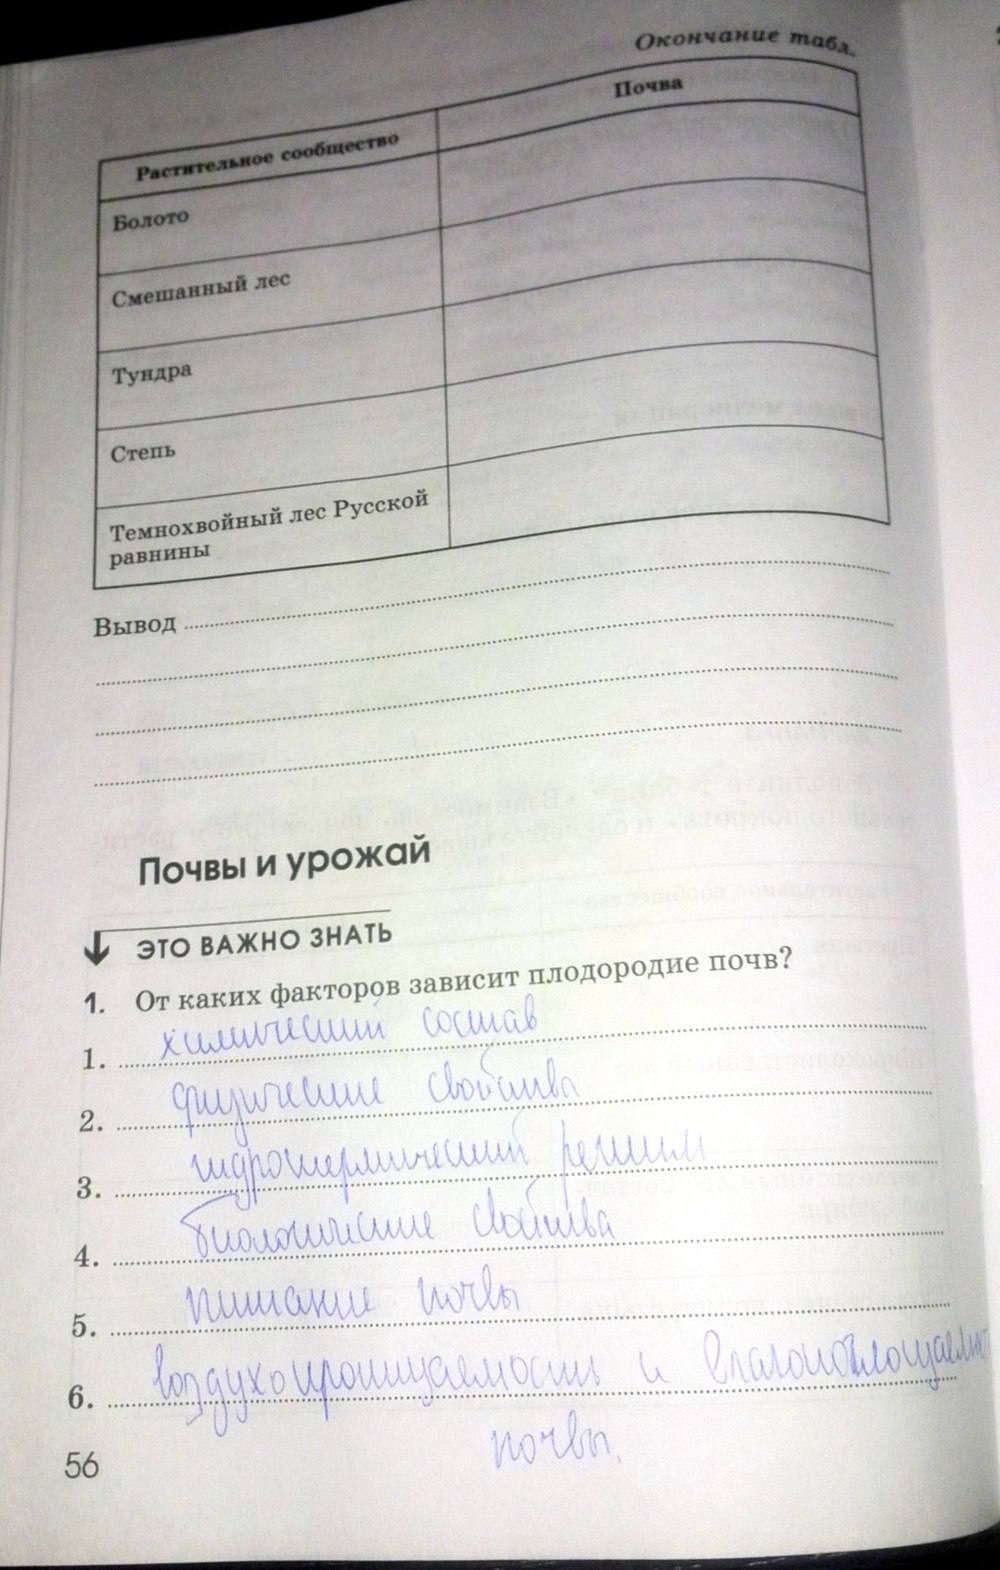 Окончание табл.
Растительное сообщество Почва
Болото
Смешанный лес
Тундра
Степь
Темнохвойный лес Русской
равнины
Вывод
Почвы и урожай
ЭТО ВАЖНО ЗНАТЬ
1. От каких факторов зависит плодородие почв?
1. химический состав
2. физические свойства
3. гидротермический режим
4. биологические свойства
5. питание почвы
6. воздухопроницаемость и влагопоглощаемость
почвы.
56